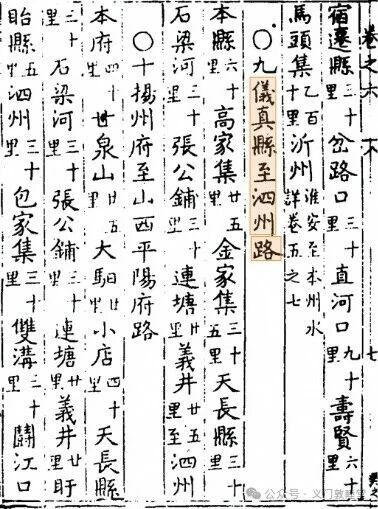 卷之六 七
宿遷縣三十里岔路口三十里直河口九十里壽賢六十里
馬頭集乙百十里沂州淮安至本州水詳卷五之七
○九儀真縣至泗州路
本縣六十里高家集廿五里金家集三十五里天長縣三十里
石梁河三十里張公鋪三十里連塘廿里義井廿五里至泗州
○十揚州府至山西平陽府路
本府四十里世泉山廿五里大馬廿里小店四十里天長縣
三十里石梁河三十里張公鋪三十里連塘廿里義井廿里盱
眙縣五里泗州三十里包家集三十里雙溝三十里鬪江口
公众号·义门